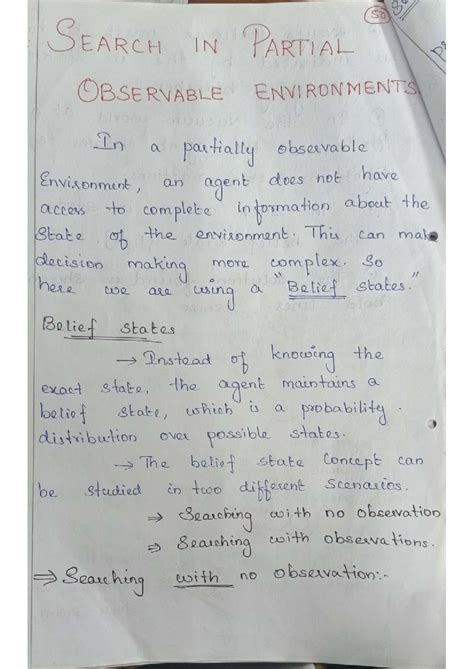 50
SEARCH IN PARTIAL
OBSERVABLE ENVIRONMENTS
In a partially observable
Environment, an agent does not have
access to complete information about the
State of the environment. This can make
decision making more complex. So
here we are using a "Belief states."
Belief states
→ Instead of knowing the
exact state, the agent maintains a
belief state, which is a probability
distribution over possible states.
→ The belief state concept can
be studied in two different scenarios.
⇒ Searching with no observation
⇒ Searching with observations.
⇒ Searching with no observation:-